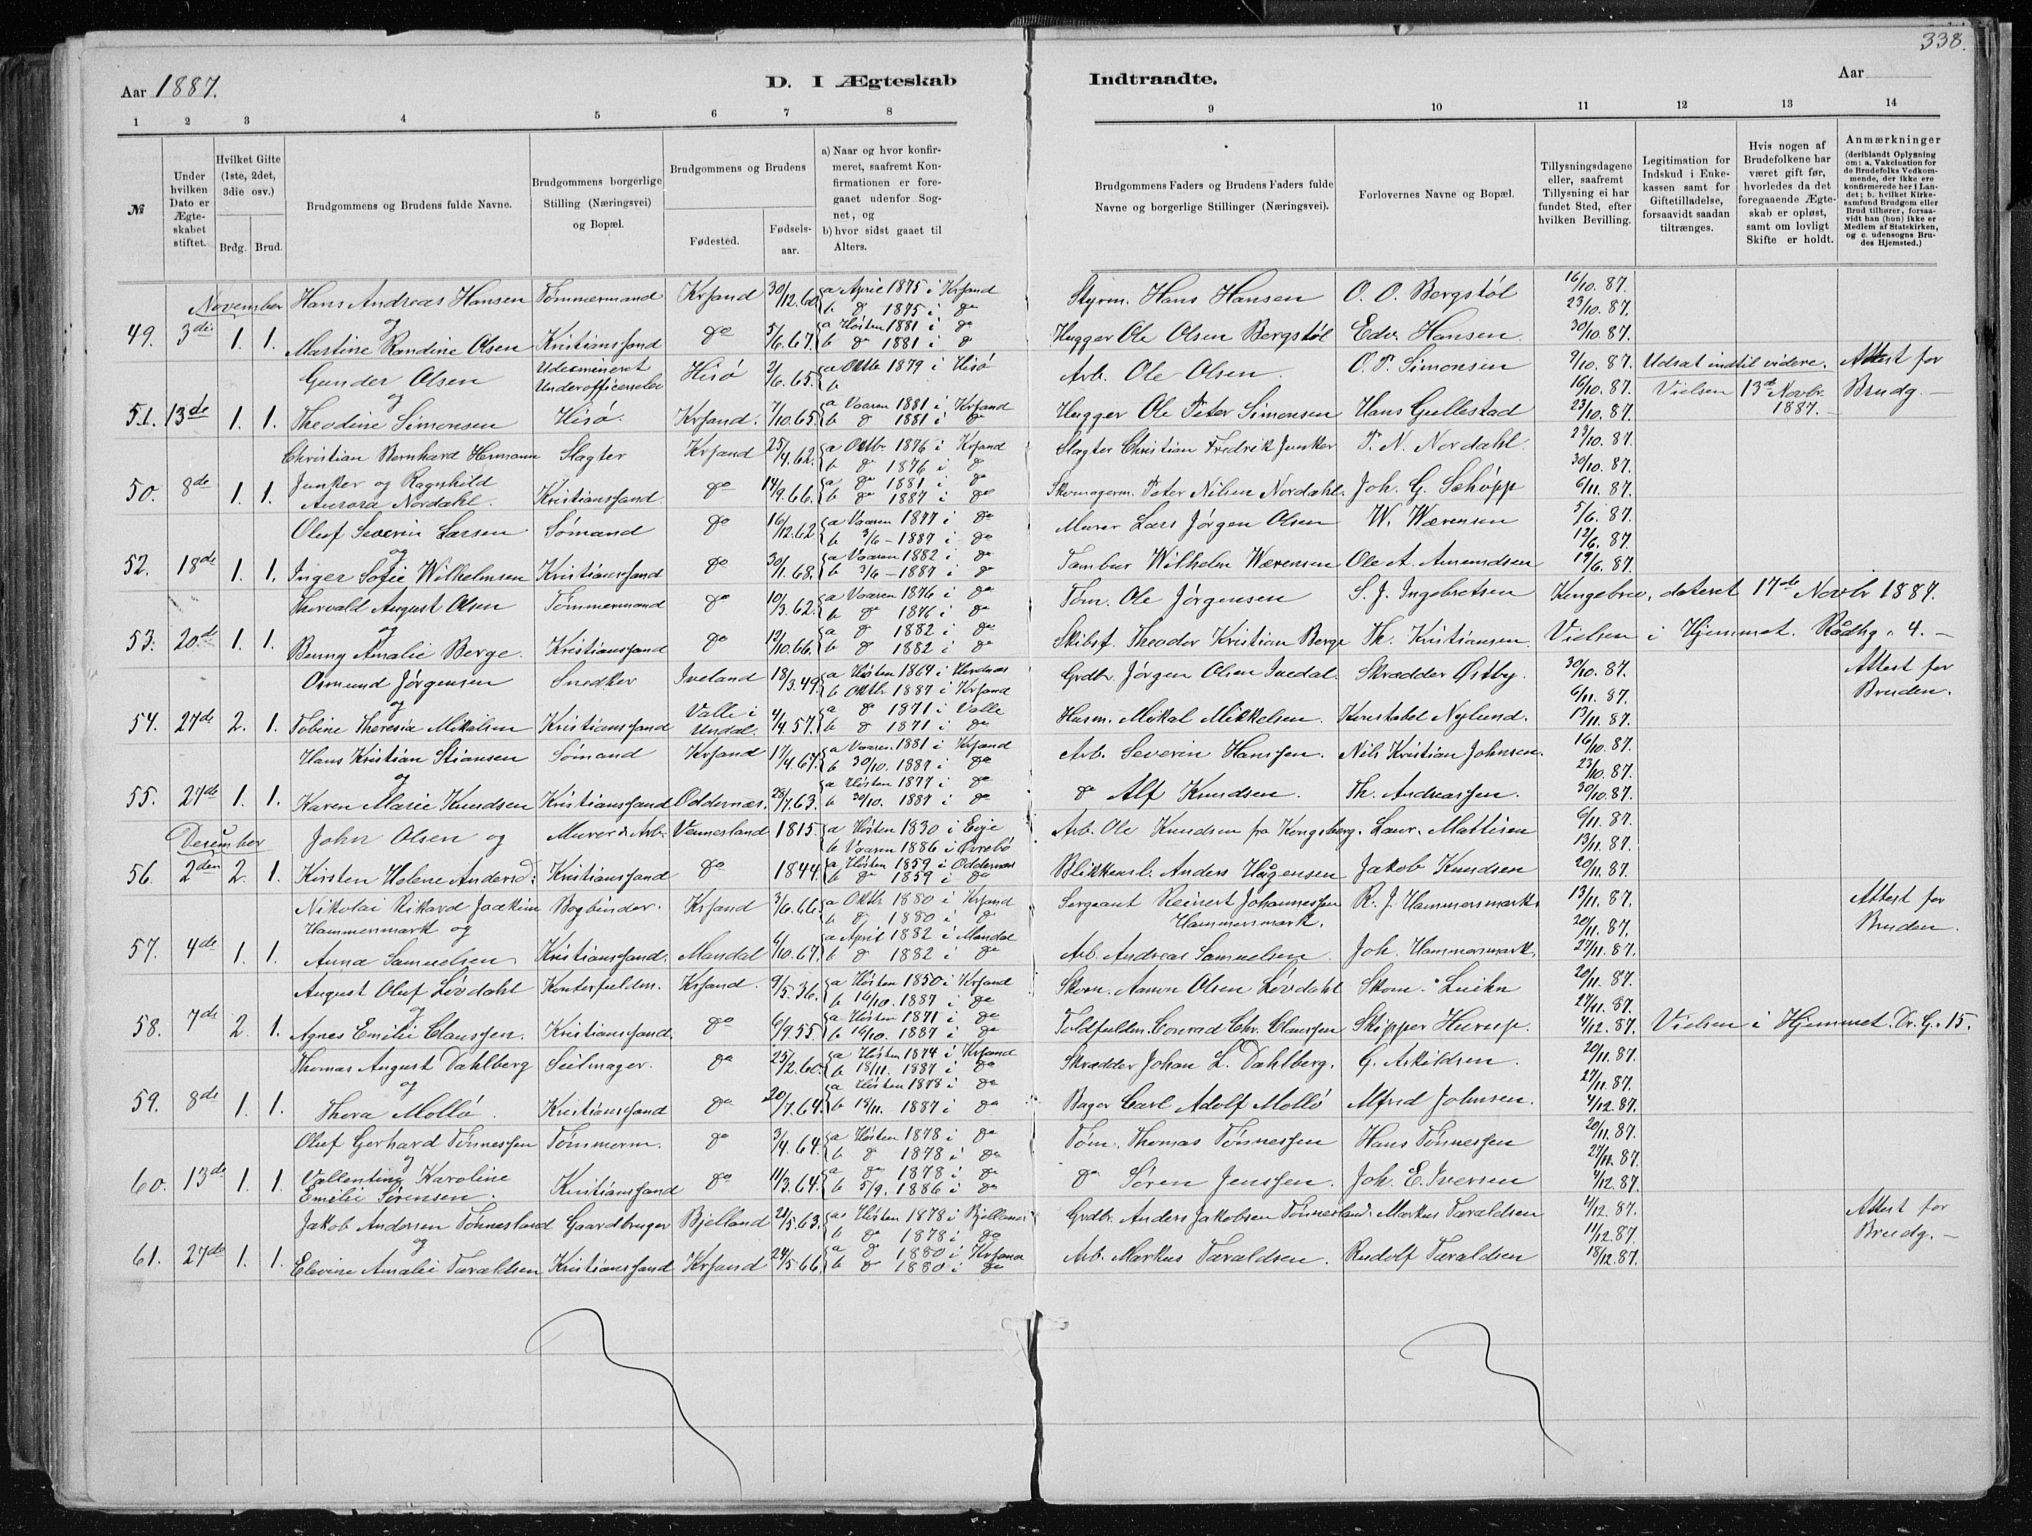 338.
Aar 1887.
D. I Ægteskab
Indtraadte.
Aar
1 2 3 4 5 6 7 8
9 10 11 12 13 14
№
Under hvilken Dato er Ægteskabet stiftet.
Hvilket Gifte (1ste, 2det, 3die osv.)
Brdg. Brud.
Brudgommens og Brudens fulde Navne.
Brudgommens borgerlige Stilling (Næringsvei) og Bopæl.
Brudgommens og Brudens
Fødested.
Fødselsaar.
a) Naar og hvor konfirmeret, saafremt Konfirmationen er foregaaet udenfor Sognet, og
b) hvor sidst gaaet til Alters.
Brudgommens Faders og Brudens Faders fulde Navne og borgerlige Stillinger (Næringsvei).
Forlovernes Navne og Bopæl.
Tillysningsdagene eller, saafremt Tillysning ei har fundet Sted, efter hvilken Bevilling.
Legitimation for Indskud i Enkekassen samt for Giftetilladelse, forsaavidt saadan tiltrænges.
Hvis nogen af Brudefolkene har været gift før, hvorledes da det foregaaende Ægteskab er opløst, samt om lovligt Skifte er holdt.
Anmærkninger
(deriblandt Oplysning om: a. Vakcination for de Brudefolks Vedkommende, der ikke ere konfirmerede her i Landet; b. hvilket Kirkesamfund Brudgom eller Brud tilhører, forsaavidt han (hun) ikke er Medlem af Statskirken, og c. udensogns Brudes Hjemsted.)
November Hans Andreas Hansen Tømmermand Krsand 30/12.60. a April 1875 i Krsand b do 1875 i do Styrm. Hans Hansen O. O. Bergstøl 16/10.87. 23/10.87.
49. 3die 1. 1. og Martine Randine Olsen Kristianssand do 5/6.67. a Høsten 1881 i do b do 1881 i do Hugger Ole Olsen Bergstøl Edv. Hansen 30/10.87.
Gunder Olsen Udexamineret Underofficerselev Hisø 2/6.65. a Oktb 1879 i Hisø b Arb. Ole Olsen. O. P. Simonsen 9/10.87. 16/10.87. Udsat indtil videre. Attest for
51. 13de 1. 1. og Theodine Simonsen Hisø. Krsand. 7/10.65. a Vaaren 1881 i Krsand b do 1881 i do Hugger Ole Peter Simonsen Hans Gullestad 23/10.87. Vielsen 13de Novbr 1887. Brudg.
Christian Bernhard Hermann Slagter Krsand 25/4.62. a Oktbr. 1876 i Krsand b do 1876 i do Slagter Christian Fredrik Junker P. N. Nordahl 23/10.87. 30/10.87.
50. 8de 1. 1. Junker og Ragnhild Aurora Nordahl. Kristianssand. do 14/9.66. a do 1881 i do b do 1887 i do Skomagerm. Peter Nilsen Nordahl. Joh. G. Schöpp 6/11.87.
Oluf Severin Larsen Sømand do 16/12.62 a Vaaren 1877 i do b 3/6 - 1887 i do Murer Lars Jørgen Olsen W. Wærensen 5/6.87. 12/6.87.
52. 18de 1. 1. og Inger Sofie Wilhelmsen Kristianssand do 30/11.68. a Vaaren 1882 i do b 3/6 - 1887 i do Tambur Wilhelm Wærensen Ole A. Amundsen 19/6.87.
Thorvald August Olsen Tømmermand do 10/3.62. a Vaaren 1876 i do b do 1876 i do Tøm. Ole Jørgensen S. J. Ingebretsen Kongebrev, dateret 17de Novbr 1887.
53. 20de 1. 1. og Benny Amalie Berge. Kristianssand do 12/10.66. a do 1882 i do b do 1882 i do Skibsf. Theodor Kristian Berge Th. Kristiansen. Vielsen i Hjemmet. Rådhg. 4.
Osmund Jørgensen Snedker Iveland 18/3.49. a Høsten 1864 i b Oktbr 1887 i Krsand Grdbr. Jørgen Olsen Skrædder Østby. 30/10.87. 6/11.87. Attest for Bruden.
54. 27de 2. 1. og Tobine Theresia Mikalsen Kristianssand Valle i Undal. 4/4.57. a do 1871 i Valle b do 1871 i do Husm. Mikal Mikkelsen. Konstabel Nylund. 13/11.87.
Hans Kristian Stiansen Sømand Krsand 17/4.67. a Vaaren 1881 i Krsand b 30/10. 1887 i do Arb. Severin Hanssen. Nils Kristian Johnsen. 16/10.87. 23/10.87.
55. 27de 1. 1. og Karen Marie Knudsen Kristianssand Oddernæs. 28/7.63. a Høsten 1877 i do b 30/10. 1887 i do do Alf Knudsen. Th. Andreassen. 30/10.87.
December John Olsen og Murer & Arb. Vennesland 1815. a Høsten 1830 i Evje b Vaaren 1886 i Øvrebø Arb. Ole Knudsen fra Kongsberg. Laur. Mattisen 6/11.87. 13/11.87.
56. 2den 2. 1. Kirsten Helene Andersd: Kristianssand do 1844. a Høsten 1859 i Oddernæs b do 1859 i do Blikkensl. Anders Hågensen Jakob Knudsen 20/11.87.
Nikolai Rikard Joakim Bogbinder. Krsand 3/6.66. a Oktb 1880 i Krsand b do 1880 i do Sergeant Reinert Johannessen Hammersmark. R. J. Hammersmark 13/11.87. 20/11.87. Attest for Bruden.
57. 4de 1. 1. Hammersmark og Anna Samuelsen Kristianssand. Mandal 6/10.67. a April 1882 i Mandal b do 1882 i do Arb. Andreas Samuelsen. Joh. Hammersmark. 27/11.87.
August Oluf Løvdahl Kontorfuldm. Krsand. 9/5.36. a Høsten 1850 i Krsand b 16/10. 1887 i do Skom. Aanon Olsen Løvdahl Skom. 20/11.87. 27/11.87.
58. 7de 2. 1. og Agnes Emilie Claussen. Kristianssand. do 6/9.55. a Høsten 1871 i do b 16/10. 1887 i do Toldfuldm. Conrad Chr. Claussen Skipper Hurup. 4/12.87. Vielsen i Hjemmet. Dr. G. 15.
Thomas August Dahlberg Seilmager. do 25/2.60. a Høsten 1874 i Krsand b 18/11. 1887 i do Skrædder Johan L. Dahlberg. G. Askildsen. 20/11.87. 27/11.87.
59. 8de 1. 1. og Thora Mollø. Kristianssand do 20/7.64. a Høsten 1878 i do b 13/11. 1887 i do Bager Carl Adolf Mollø Alfred Johnsen. 4/12.87.
Oluf Gerhard Tønnessen Tømmerm. do 3/4.64. a Høsten 1878 i do b do 1878 i do Tøm. Thomas Tønnessen Hans Tønnessen 20/11.87. 27/11.87.
60. 13de 1. 1. og Vallentine Karoline Emilie Sørensen. Kristianssand do 11/3.64. a do 1878 i do b 5/9. 1886 i do do Søren Jenssen. Joh. E. Iversen 4/12.87.
Jakob Andersen Tønnesland Gaardbruger Bjelland 21/5.63. a Høsten 1878 i Bjelland b do 1878 i do Grdbr. Anders Jakobsen Tønnesland. Markus Taraldsen 4/12.87. 11/12.87. Attest for Brudg.
61. 27de 1. 1. og Elevine Amalie Taraldsen Kristianssand Krsand 24/5.66. a do 1880 i Krsand b do 1880 i do Arb. Markus Taraldsen. Rudolf Taraldsen 18/12.87.